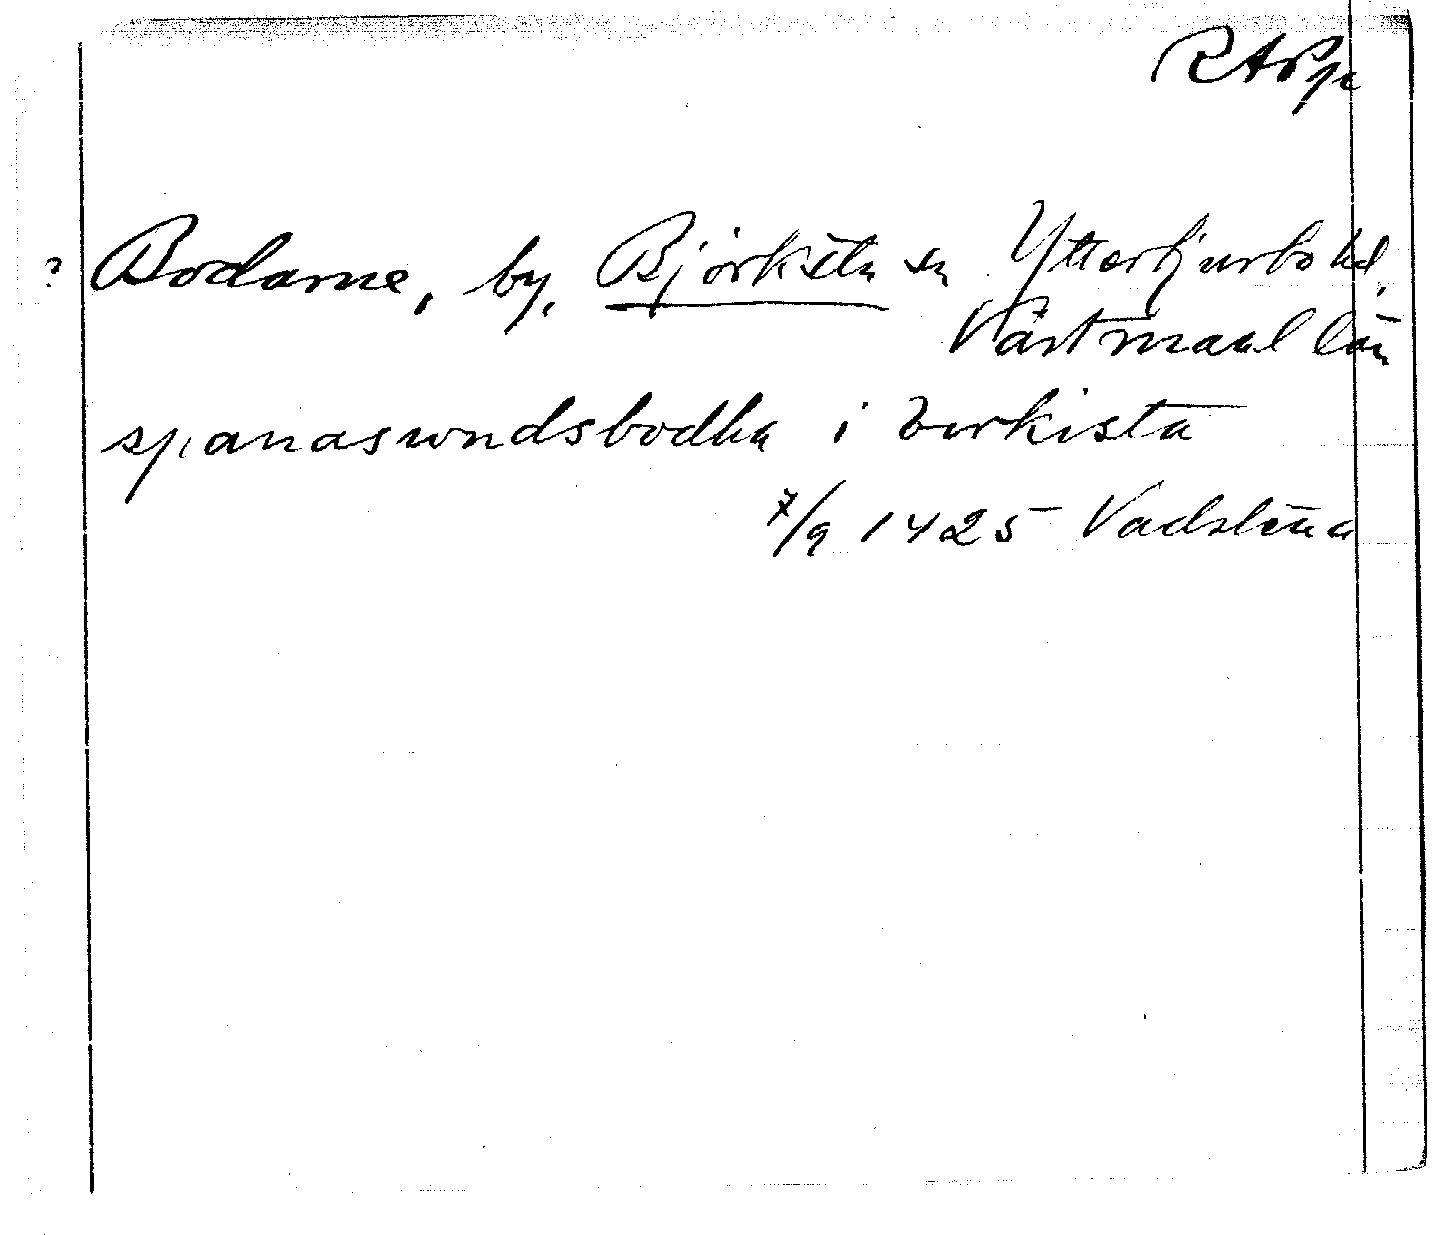 RAPp
? Bodarne, by, Björksta sn Yttertjurbo hd,
Västmanl län
spanaswndsbodha i birkista
7/9 1425 Vadstena